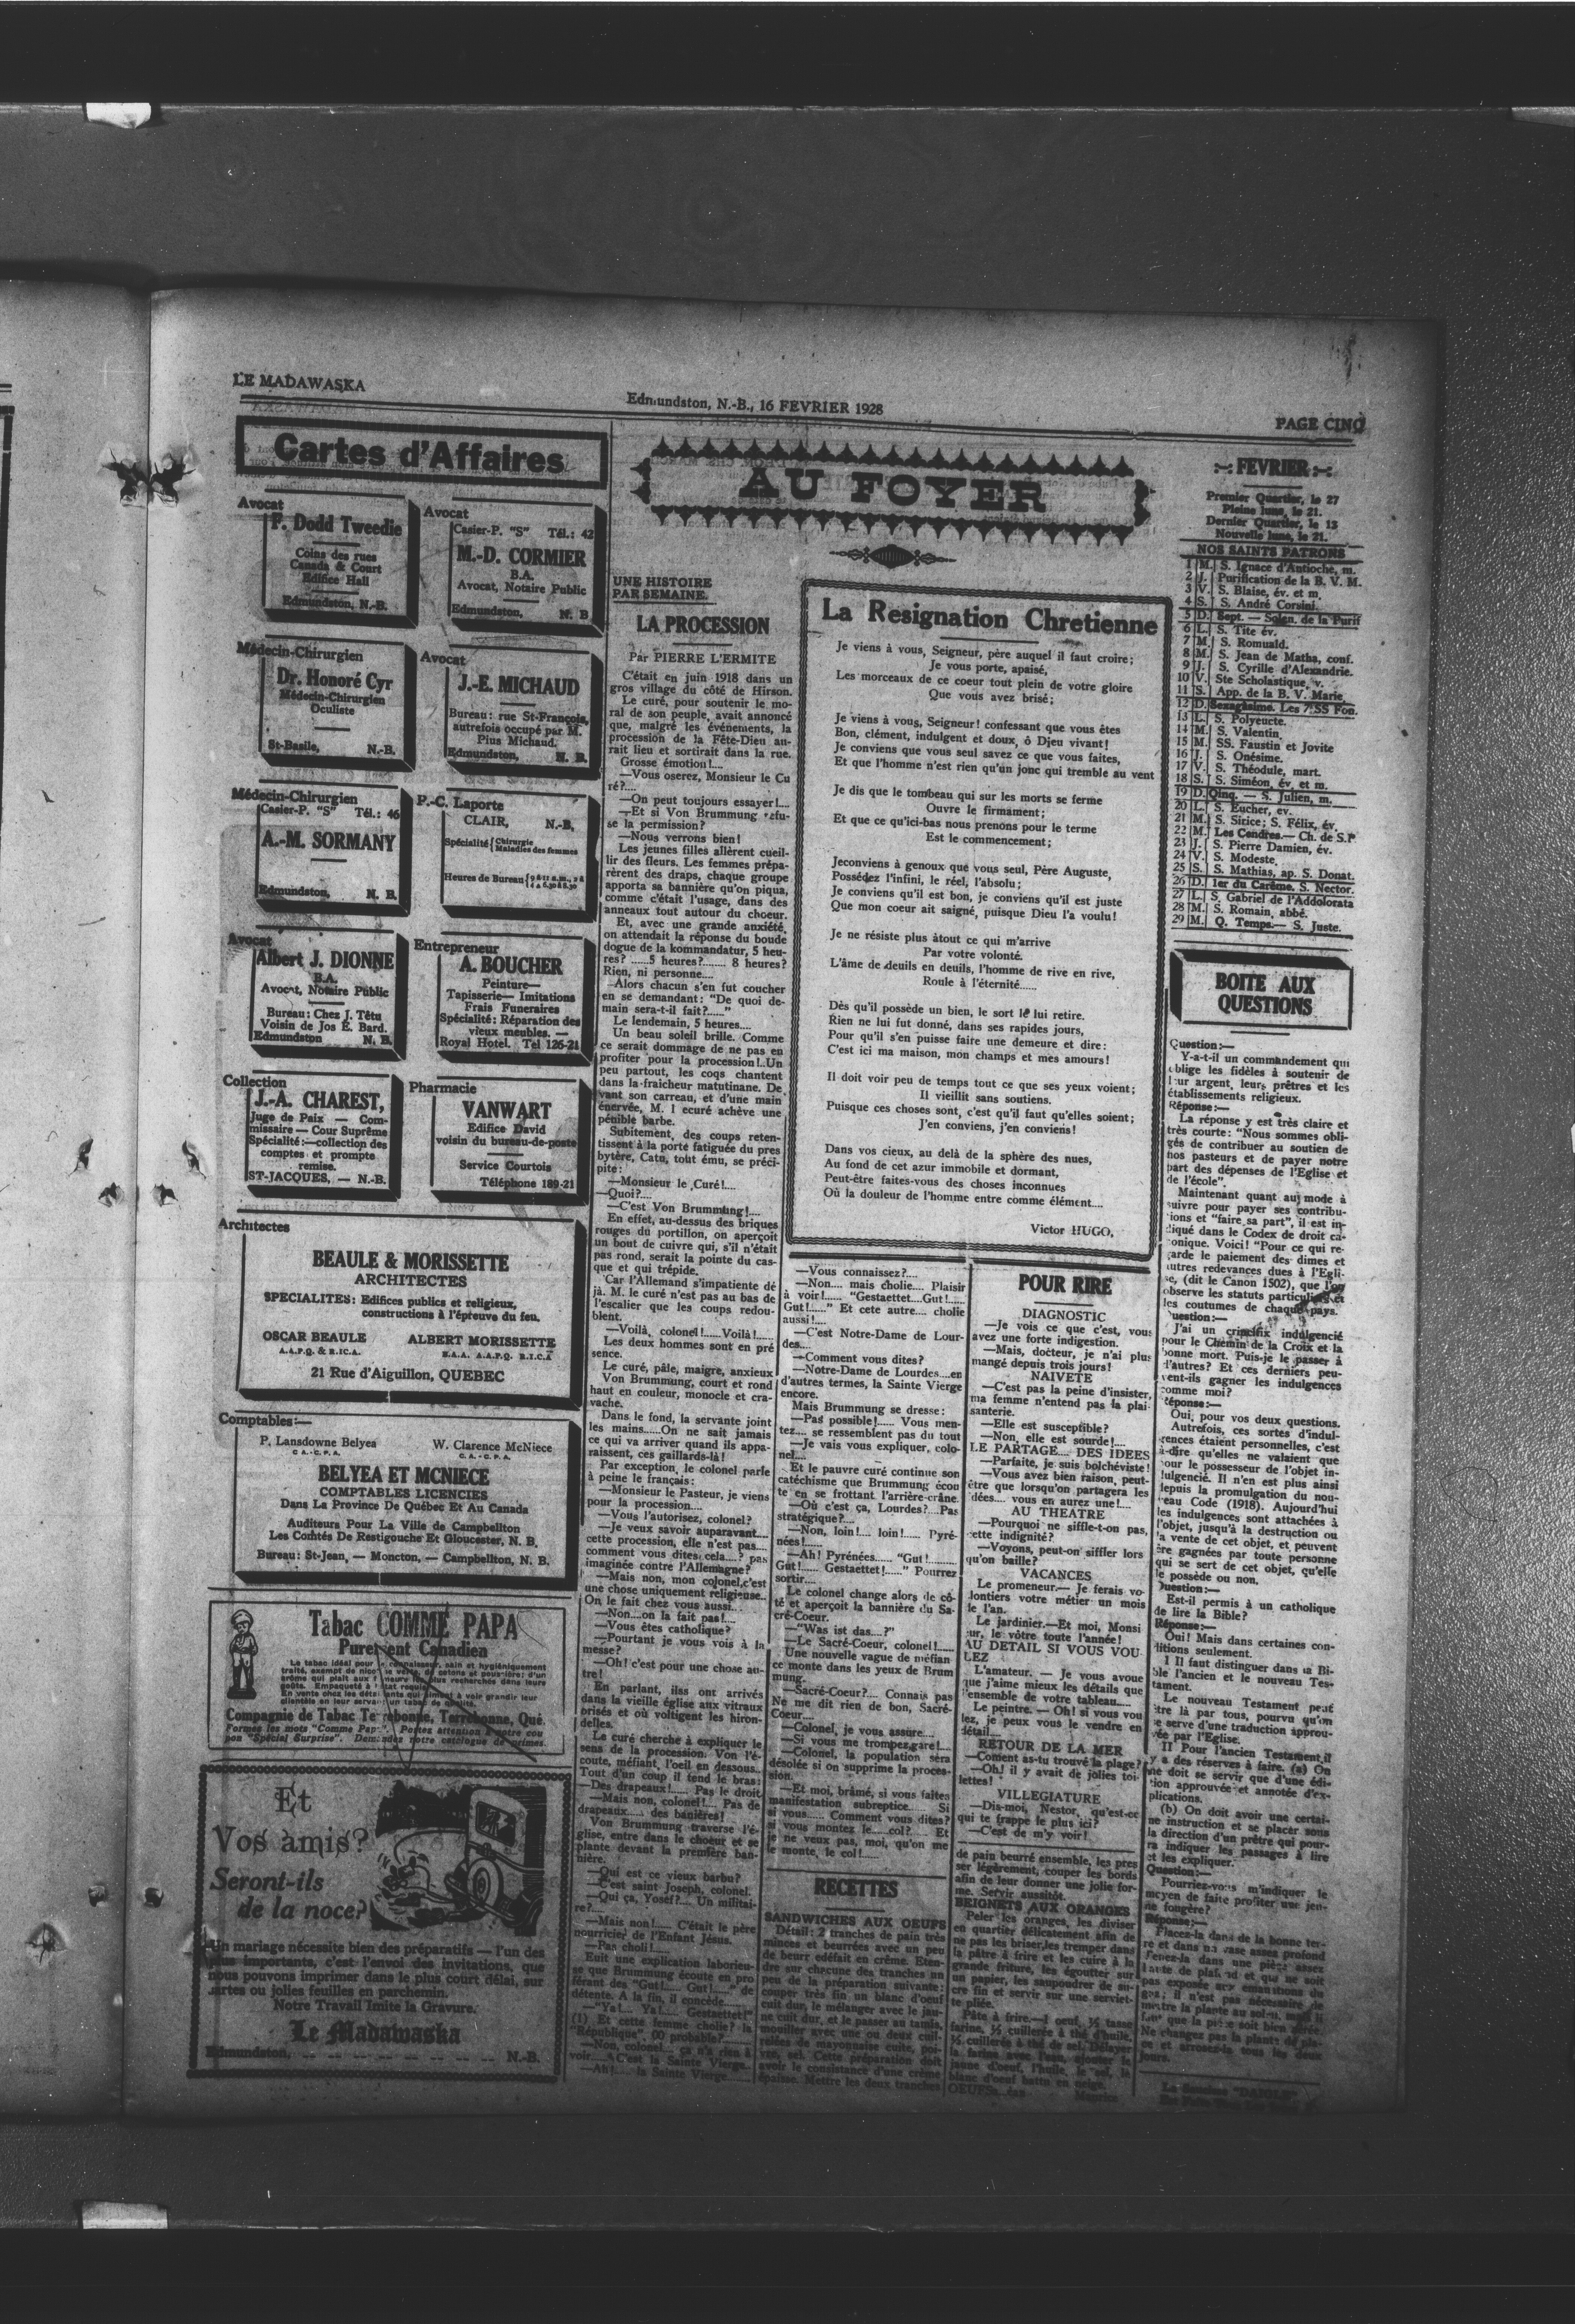 LE MADAWASKA
Edmundston, N.-B., 16 FEVRIER 1928
PAGE CINQ
Cartes d'Affaires
Avocat
F. Dodd Tweedie
Coins des rues
Canada & Court
Edifice Hall
Edmundston, N.-B.
Avocat
Casier-P. "S" Tél.: 42
M.-D. CORMIER
B.A.
Avocat, Notaire Public
Edmundston, N. B
Médecin-Chirurgien
Dr. Honoré Cyr
Médecin-Chirurgien
Oculiste
St-Basile, N.-B.
Avocat
J.-E. MICHAUD
Bureau: rue St-François,
autrefois occupé par M.
Pius Michaud.
Edmundston, N. B.
Médecin-Chirurgien
Casier-P. "S" Tél.: 46
A.-M. SORMANY
Edmundston, N. B.
P.-C. Laporte
CLAIR, N.-B,
Spécialité { Chirurgie
Maladies des femmes
Heures de Bureau
Avocat
Albert J. DIONNE
B.A.
Avocat, Notaire Public
Bureau: Chez J. Têtu
Voisin de Jos E. Bard.
Edmundston N. B.
Entrepreneur
A. BOUCHER
Peinture—
Tapisserie— Imitations
Frais Funeraires
Spécialité: Réparation des
vieux meubles. —
Royal Hotel. Tel 126-21
Collection
J.-A. CHAREST,
Juge de Paix — Com-
missaire — Cour Suprême
Spécialité:—collection des
comptes et prompte
remise.
ST-JACQUES, — N.-B.
Pharmacie
VANWART
Edifice David
voisin du bureau-de-poste
Service Courtois
Téléphone 189-21
Architectes
BEAULE & MORISSETTE
ARCHITECTES
SPECIALITES: Edifices publics et religieux,
constructions à l'épreuve du feu.
OSCAR BEAULE ALBERT MORISSETTE
A.A.P.Q. & R.I.C.A. B.A.A. A.A.P.Q. R.I.C.A
21 Rue d'Aiguillon, QUEBEC
Comptables:—
P. Lansdowne Belyea W. Clarence McNiece
C. A. - C. P. A. C. A. - C. P. A.
BELYEA ET MCNIECE
COMPTABLES LICENCIES
Dans La Province De Québec Et Au Canada
Auditeurs Pour La Ville de Campbellton
Les Comtés De Restigouche Et Gloucester, N. B.
Bureau: St-Jean, — Moncton, — Campbellton, N. B.
Tabac COMME PAPA
Purement Canadien
Le tabac idéal pour le connaisseur, sain et hygiéniquement
Compagnie de Tabac Terrebonne, Terrebonne, Qué.
Formez les mots "Comme Papa". Portez attention à notre cou
pon "Spécial Surprise". Demandez notre catalogue de primes.
Et
Vos amis?
Seront-ils
de la noce?
Un mariage nécessite bien des préparatifs — l'un des
plus importants, c'est l'envoi des invitations, que
nous pouvons imprimer dans le plus court délai, sur
cartes ou jolies feuilles en parchemin.
Notre Travail Imite la Gravure.
Le Madawaska
Edmundston. -- -- -- -- -- -- -- -- N.-B.
AU FOYER
UNE HISTOIRE
PAR SEMAINE.
LA PROCESSION
Par PIERRE L'ERMITE
C'était en juin 1918 dans un
gros village du côté de Hirson.
Le curé, pour soutenir le mo-
ral de son peuple, avait annoncé
que, malgré les événements, la
procession de la Fête-Dieu au-
rait lieu et sortirait dans la rue.
Grosse émotion!....
—Vous oserez, Monsieur le Cu
ré?....
—On peut toujours essayer!....
—Et si Von Brummung refu-
se la permission?
—Nous verrons bien!
Les jeunes filles allèrent cueil-
lir des fleurs. Les femmes prépa-
rèrent des draps, chaque groupe
apporta sa bannière qu'on piqua,
comme c'était l'usage, dans des
anneaux tout autour du choeur.
Et, avec une grande anxiété,
on attendait la réponse du boule
dogue de la kommandatur, 5 heu-
res? ......5 heures?........ 8 heures?
Rien, ni personne....
Alors chacun s'en fut coucher
en se demandant: "De quoi de-
main sera-t-il fait?......"
Le lendemain, 5 heures....
Un beau soleil brille. Comme
ce serait dommage de ne pas en
profiter pour la procession!..Un
peu partout, les coqs chantent
dans la fraicheur matutinane. De
vant son carreau, et d'une main
énervée, M. l ecuré achève une
pénible barbe.
Subitement, des coups reten-
tissent à la porte fatiguée du pres
bytère, Catu, tout ému, se préci-
pite:
—Monsieur le Curé!....
—Quoi?....
—C'est Von Brummung!....
En effet, au-dessus des briques
rouges du portillon, on aperçoit
un bout de cuivre qui, s'il n'était
pas rond, serait la pointe du cas-
que et qui trépide.
Car l'Allemand s'impatiente dé
jà. M. le curé n'est pas au bas de
l'escalier que les coups redou-
blent.
—Voilà, colonel!......Voilà!......
Les deux hommes sont en pré
sence.
Le curé, pâle, maigre, anxieux
Von Brummung, court et rond
haut en couleur, monocle et cra-
vache.
Dans le fond, la servante joint
les mains......On ne sait jamais
ce qui va arriver quand ils appa-
raissent, ces gaillards-là!
Par exception, le colonel parle
à peine le français:
—Monsieur le Pasteur, je viens
pour la procession....
—Vous l'autorisez, colonel?
—Je veux savoir auparavant....
cette procession, elle n'est pas....
comment vous dites cela....? pas
imaginée contre l'Allemagne?
—Mais non, mon colonel,c'est
une chose uniquement religieuse..
On le fait chez vous aussi...
—Non....on la fait pas!....
—Vous êtes catholique?
—Pourtant je vous vois à la
messe?
—Oh! c'est pour une chose au-
tre!
En parlant, ilss ont arrivés
dans la vieille église aux vitraux
brisés et où voltigent les hiron-
delles.
Le curé cherche à expliquer le
sens de la procession. Von l'é-
coute, méfiant, l'oeil en dessous..
Tout d'un coup il tend le bras:
—Des drapeaux!...... Pas le droit
—Mais non, colonel!.... Pas de
drapeaux...... des banières!
Von Brummung traverse l'é-
glise, entre dans le choeur et se
plante devant la première ban-
nière.
—Qui est ce vieux barbu?
—C'est saint Joseph, colonel.
—Qui ça, Yosef?.... Un militai-
re?....
—Mais non!...... C'était le père
nourricier de l'Enfant Jésus.
—Pas choli!....
Suit une explication laborieu-
se que Brummung écoute en pro
férant des "Gut!...... Gut!......" de
détente. A la fin, il concède......
—"Ya!.... Ya!...... Gestaettet!"
(1) Et cette femme cholie? la
"République", 00 probable?......
—Non, colonel... ça n'a rien à
voir....C'est la Sainte Vierge..
—Ah!.... la Sainte Vierge......
—Vous connaissez?....
—Non.... mais cholie.... Plaisir
à voir!...... "Gestaettet....Gut!......
Gut!......" Et cete autre.... cholie
aussi!....
—C'est Notre-Dame de Lour-
des....
—Comment vous dites?
—Notre-Dame de Lourdes....en
d'autres termes, la Sainte Vierge
encore.
Mais Brummung se dresse:
—Pas possible!...... Vous men-
tez.... se ressemblent pas du tout
—Je vais vous expliquer, colo-
nel....
Et le pauvre curé continue son
catéchisme que Brummung écou
te en se frottant l'arrière-crâne.
—Où c'est ça, Lourdes?....Pas
stratégique?....
—Non, loin!.... loin!...... Pyré-
nées!......
—Ah! Pyrénées...... "Gut!.........
Gut!...... Gestaettet!......" Pourrez
sortir....
Le colonel change alors de cô-
té et aperçoit la bannière du Sa-
cré-Coeur.
—"Was ist das....?"
—Le Sacré-Coeur, colonel!......
Une nouvelle vague de méfian-
ce monte dans les yeux de Brum
mung.
—Sacré-Coeur?.... Connais pas
Ne me dit rien de bon, Sacré-
Coeur....
—Colonel, je vous assure....
—Si vous me trompez,gare!....
—Colonel, la population sera
désolée si on supprime la proces-
sion.
—Et moi, brâmé, si vous faites
manifestation subreptice...... Si
si vous...... Comment vous dites?
si vous montez le......col?...... Et
je ne veux pas, moi, qu'on me
le monte, le col!......
RECETTES
SANDWICHES AUX OEUFS
Détail: 2 tranches de pain très
minces et beurrées avec un peu
de beurr edéfait en crême. Eten-
dre sur chacune des tranches un
peu de la préparation suivante:
couper très fin un blanc d'oeuf
cuit dur, le mélanger avec le jau-
ne cuit dur, et le passer au tamis,
mouiller avec une ou deux cuil-
lerées de mayonnaise cuite, poi-
vre, sel. Cette préparation doit
avoir le consistance d'une crême
épaisse. Mettre les deux tranches
La Resignation Chretienne
Je viens à vous, Seigneur, père auquel il faut croire;
Je vous porte, apaisé,
Les morceaux de ce coeur tout plein de votre gloire
Que vous avez brisé;
Je viens à vous, Seigneur! confessant que vous êtes
Bon, clément, indulgent et doux, ô Djeu vivant!
Je conviens que vous seul savez ce que vous faites,
Et que l'homme n'est rien qu'un jonc qui tremble au vent
Je dis que le tombeau qui sur les morts se ferme
Ouvre le firmament;
Et que ce qu'ici-bas nous prenons pour le terme
Est le commencement;
Jeconviens à genoux que vous seul, Père Auguste,
Possédez l'infini, le réel, l'absolu;
Je conviens qu'il est bon, je conviens qu'il est juste
Que mon coeur ait saigné, puisque Dieu l'a voulu!
Je ne résiste plus àtout ce qui m'arrive
Par votre volonté.
L'âme de deuils en deuils, l'homme de rive en rive,
Roule à l'éternité......
Dès qu'il possède un bien, le sort le lui retire.
Rien ne lui fut donné, dans ses rapides jours,
Pour qu'il s'en puisse faire une demeure et dire:
C'est ici ma maison, mon champs et mes amours!
Il doit voir peu de temps tout ce que ses yeux voient;
Il vieillit sans soutiens.
Puisque ces choses sont, c'est qu'il faut qu'elles soient;
J'en conviens, j'en conviens!
Dans vos cieux, au delà de la sphère des nues,
Au fond de cet azur immobile et dormant,
Peut-être faites-vous des choses inconnues
Où la douleur de l'homme entre comme élément....
Victor HUGO.
POUR RIRE
DIAGNOSTIC
—Je vois ce que c'est, vous
avez une forte indigestion.
—Mais, docteur, je n'ai plus
mangé depuis trois jours!
NAIVETE
—C'est pas la peine d'insister,
ma femme n'entend pas la plai-
santerie.
—Elle est susceptible?
—Non, elle est sourde!....
LE PARTAGE.... DES IDEES
—Parfaite, je suis bolchéviste!
—Vous avez bien raison, peut-
être que lorsqu'on partagera les
idées.... vous en aurez une!....
AU THEATRE
—Pourquoi ne siffle-t-on pas,
cette indignité?
—Voyons, peut-on siffler lors
qu'on baille?
VACANCES
Le promeneur.— Je ferais vo-
lontiers votre métier un mois
le l'an.
Le jardinier.—Et moi, Monsi
ur, le vôtre toute l'année!
AU DETAIL SI VOUS VOU
LEZ
L'amateur. — Je vous avoue
que j'aime mieux les détails que
l'ensemble de votre tableau....
Le peintre. — Oh! si vous vou
lez, je peux vous le vendre en
détail....
RETOUR DE LA MER
—Coment as-tu trouvé la plage?
—Oh! il y avait de jolies toi-
lettes!
VILLEGIATURE
—Dis-moi, Nestor, qu'est-ce
qui te frappe le plus ici?
—C'est de m'y voir!
de pain beurré ensemble, les pres
ser légèrement, couper les bords
afin de leur donner une jolie for-
me. Servir aussitôt.
BEIGNETS AUX ORANGES
Peler les oranges, les diviser
en quartier délicatement afin de
ne pas les briser,les tremper dans
la pâtre à frire et les cuire à la
grande friture, les égoutter sur
un papier, les saupoudrer de su-
cre fin et servir sur une serviet-
te pliée.
Pâte à frire.—1 oeuf, ½ tasse
farine, ½ cuillerée à thé d'huile,
½ cuillerée à thé de sel. Délayer
la farine avec l'eau, ajouter le
jaune d'oeuf, l'huile, le sel, le
blanc d'oeuf battu en neige.
FEVRIER
Premier Quartier, le 27
Pleine lune, le 21.
Dernier Quartier, le 13
Nouvelle lune, le 21.
NOS SAINTS PATRONS
1 M. S. Ignace d'Antioche, m.
2 J. Purification de la B. V. M.
3 V. S. Blaise, év. et m.
4 S. S. André Corsini.
5 D. Sept. — Solen. de la Purif
6 L. S. Tite év.
7 M. S. Romuald.
8 M. S. Jean de Matha, conf.
9 J. S. Cyrille d'Alexandrie.
10 V. Ste Scholastique, v.
11 S. App. de la B. V. Marie
12 D. Sexagésime. Les 7 SS Fon.
13 L. S. Polyeucte.
14 M. S. Valentin.
15 M. SS. Faustin et Jovite
16 J. S. Onésime.
17 V. S. Théodule, mart.
18 S. S. Siméon, év. et m.
19 D. Qinq. — S. Julien, m.
20 L. S. Eucher, ev.
21 M. S. Sirice; S. Félix, év.
22 M. Les Cendres.— Ch. de S.P
23 J. S. Pierre Damien, év.
24 V. S. Modeste.
25 S. S. Mathias, ap. S. Donat.
26 D. 1er du Carême. S. Nector.
27 L. S. Gabriel de l'Addolorata
28 M. S. Romain, abbé.
29 M. Q. Temps.— S. Juste.
BOITE AUX
QUESTIONS
Question:—
Y-a-t-il un commandement qui
oblige les fidèles à soutenir de
leur argent, leurs prêtres et les
établissements religieux.
Réponse:—
La réponse y est très claire et
très courte: "Nous sommes obli-
gés de contribuer au soutien de
nos pasteurs et de payer notre
part des dépenses de l'Eglise et
de l'école".
Maintenant quant au mode à
suivre pour payer ses contribu-
tions et "faire sa part", il est in-
diqué dans le Codex de droit ca-
nonique. Voici! "Pour ce qui re-
garde le paiement des dimes et
autres redevances dues à l'Egli-
se, (dit le Canon 1502), que l'on
observe les statuts particuliers et
les coutumes de chaque pays.
Question:—
J'ai un crucifix indulgencié
pour le Chemin de la Croix et la
bonne mort. Puis-je le passer à
d'autres? Et ces derniers peu-
vent-ils gagner les indulgences
comme moi?
Réponse:—
Oui, pour vos deux questions.
Autrefois, ces sortes d'indul-
gences étaient personnelles, c'est
à-dire qu'elles ne valaient que
pour le possesseur de l'objet in-
dulgencié. Il n'en est plus ainsi
depuis la promulgation du nou-
veau Code (1918). Aujourd'hui
les indulgences sont attachées à
l'objet, jusqu'à la destruction ou
la vente de cet objet, et peuvent
être gagnées par toute personne
qui se sert de cet objet, qu'elle
le possède ou non.
Question:—
Est-il permis à un catholique
de lire la Bible?
Réponse:—
Oui! Mais dans certaines con-
ditions seulement.
I Il faut distinguer dans la Bi-
ble l'ancien et le nouveau Tes-
tament.
Le nouveau Testament peut
être là par tous, pourvu qu'on
se serve d'une traduction approu-
vée par l'Eglise.
II Pour l'ancien Testament,il
y a des réserves à faire. (a) On
ne doit se servir que d'une édi-
tion approuvée et annotée d'ex-
plications.
(b) On doit avoir une certai-
ne instruction et se placer sous
la direction d'un prêtre qui pour-
ra indiquer les passages à lire
et les expliquer.
Question:—
Pourriez-vous m'indiquer le
moyen de faite profiter une jeu-
ne fongère?
Réponse:—
Placez-la dans de la bonne ter-
re et dans un vase assez profond
Tenez-la dans une pièce assez
haute de plafond et qui ne soit
pas exposée aux émanations du
gaz; il n'est pas nécessaire de
mettre la plante au soleil, mais il
faut que la pièce soit bien aérée.
Ne changez pas la plante de pla-
ce et arrosez-la tous les deux
jours.